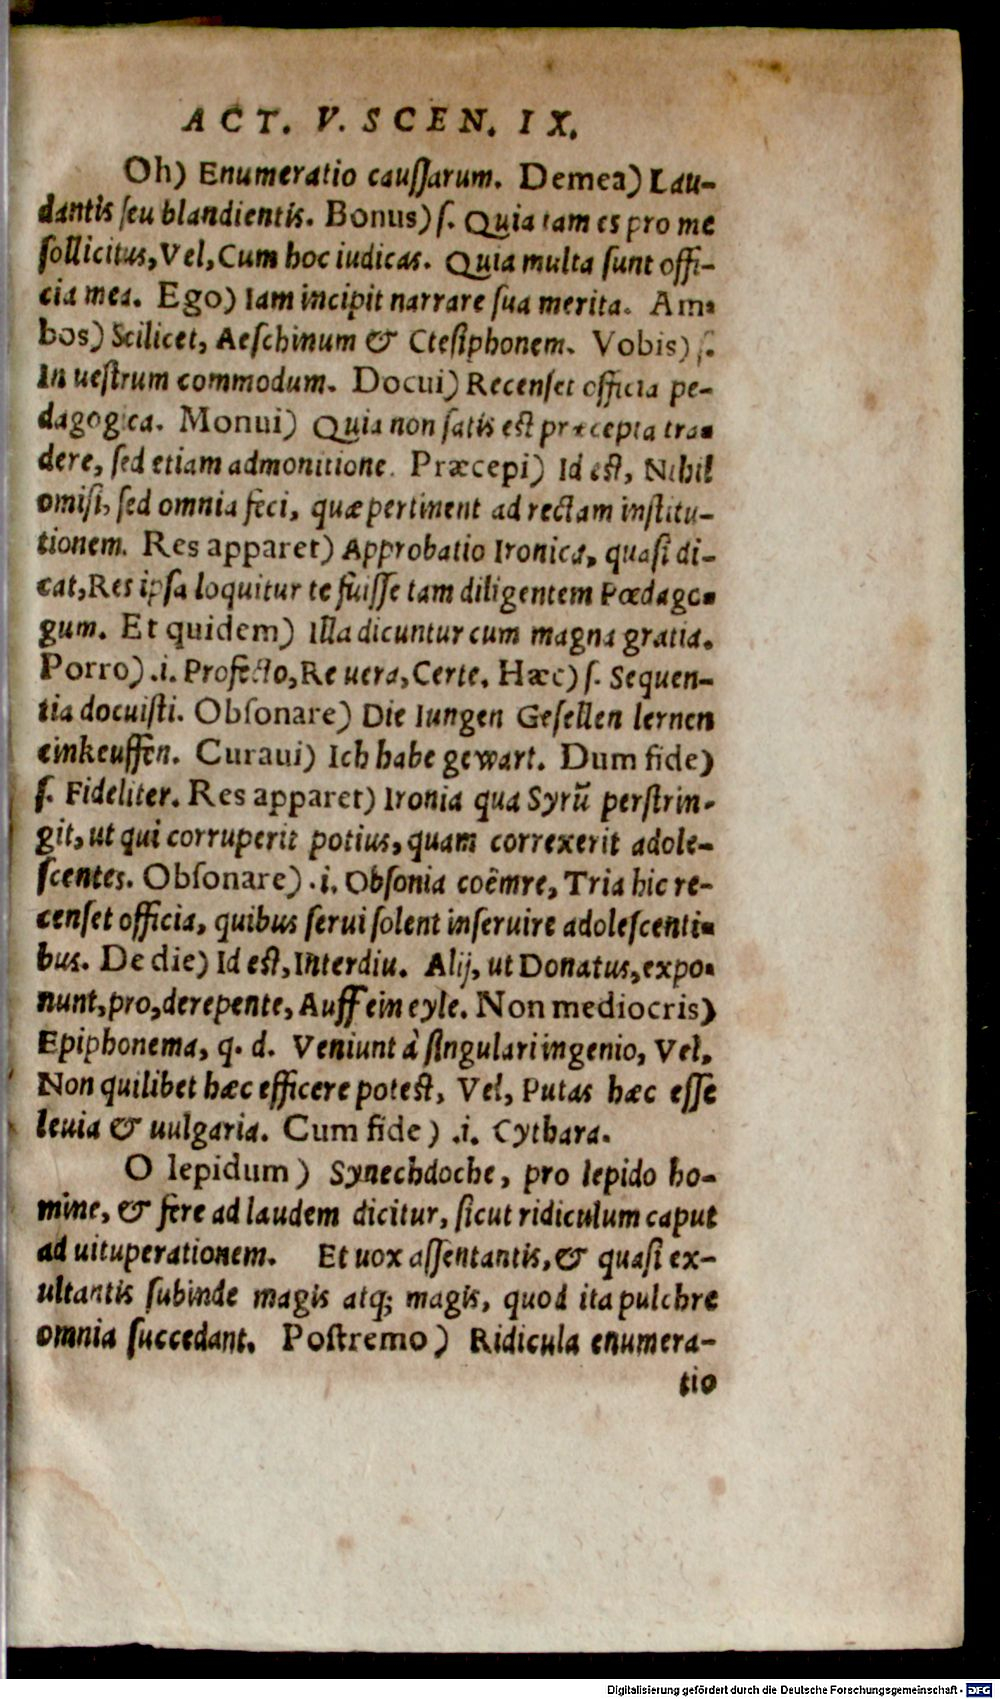 ACT. V. SCEN. IX.
Oh) Enumeratio caussarum. Demea) Lau-
dantis seu blandientis. Bonus) s. Quia tam es pro me
sollicitus, Vel, Cum hoc iudicas. Quia multa sunt offi-
cia mea. Ego) Iam incipit narrare sua merita. Am-
bos) Scilicet, Aeschinum & Ctesiphonem. Vobis) s.
In uestrum commodum. Docui) Recenset officia pe-
dagogica. Monui) Quia non satis est præcepta tra-
dere, sed etiam admonitione. Præcepi) Id est, Nihil
omisi, sed omnia feci, quæ pertinent ad rectam institu-
tionem. Res apparet) Approbatio Ironica, quasi di-
cat, Res ipsa loquitur te fuisse tam diligentem Pædago-
gum. Et quidem) Illa dicuntur cum magna gratia.
Porro) .i. Profecto, Re uera, Certe. Hæc) s. Sequen-
tia docuisti. Obsonare) Die Iungen Gesellen lernen
einkeuffen. Curaui) Ich habe gewart. Dum fide)
s. Fideliter. Res apparet) Ironia qua Syrũ perstrin-
git, ut qui corruperit potius, quam correxerit adole-
scentes. Obsonare) .i. Obsonia coëmre, Tria hic re-
censet officia, quibus serui solent inseruire adolescenti-
bus. De die) Id est, Interdiu. Alij, ut Donatus, expo-
nunt, pro, derepente, Auff ein eyle. Non mediocris)
Epiphonema, q. d. Veniunt à singulari ingenio, Vel,
Non quilibet hæc efficere potest, Vel, Putas hæc esse
leuia & uulgaria. Cum fide) .i. Cythara.
O lepidum) Synechdoche, pro lepido ho-
mine, & fere ad laudem dicitur, sicut ridiculum caput
ad uituperationem. Et uox assentantis, & quasi ex-
ultantis subinde magis atq; magis, quod ita pulchre
omnia succedant. Postremo) Ridicula enumera-
tio
Digitalisierung gefördert durch die Deutsche Forschungsgemeinschaft - DFG